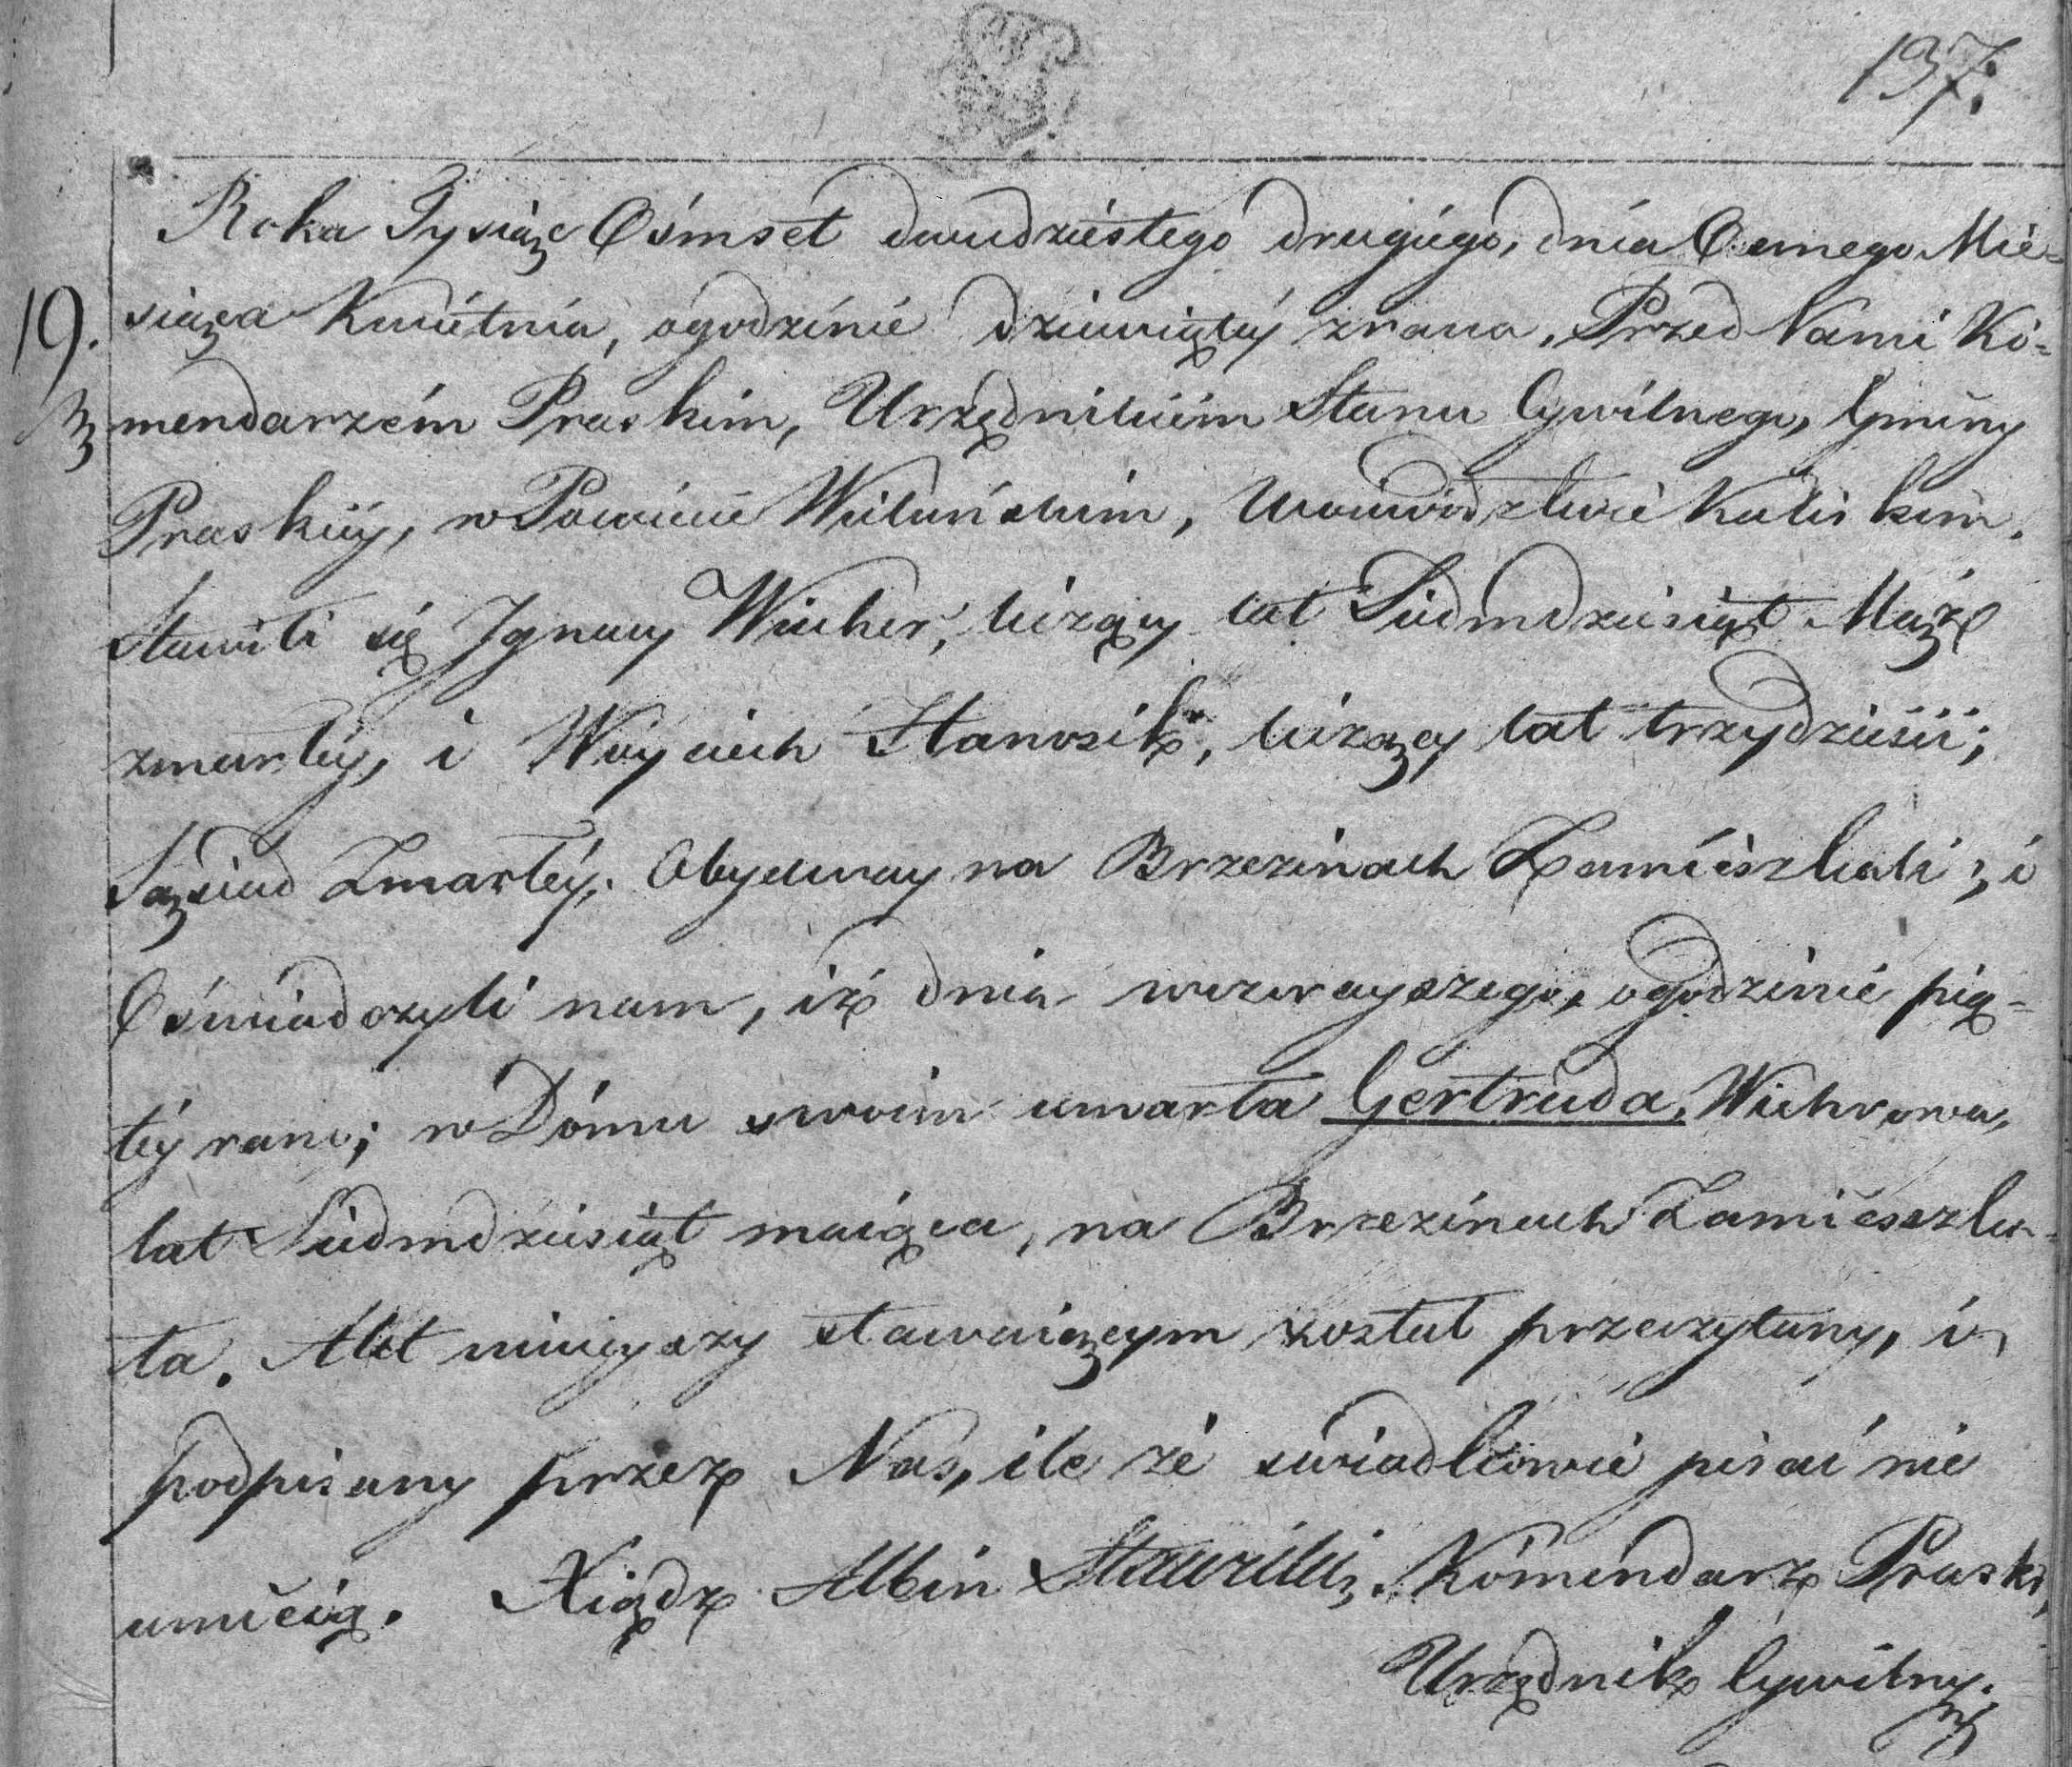 137.
Roku Tysiąc Ośmset dwudziestego drugiego, dnia Osmego Mie-
19. siąca Kwietnia, ogodzinie dziewiątey zrana, Przed Nami Ko-
mendarzem Praskim, Urzędnikiem Stanu Cywilnego, Gminy
Praskiey, w Powiecie Wieluńskim, Woiewodztwie Kaliskim.
Stawili się Jgnacy Wicher, liczący lat Siedmdziesiąt Mąż
zmarłey, i Woyciech Stanosik, liczący lat trzydzieści;
Sąsiad Zmarłey, Obydway na Brzezinach Zamieszkali; i
Oświadczyli nam, iż dnia wczorayszego, ogodzinie pią-
tey rano; w Domu swoim umarła Gertruda Wichrowa,
lat Siedmdziesiąt maiąca, na Brzezinach Zamieszka-
ła. Akt ninieyszy stawaiącym został przeczytany, i
podpisany przez Nas, ile że świadkowie pisać nie
umieią. Xiądz Albin Komendarz Praski,
Urzędnik Cywilny.